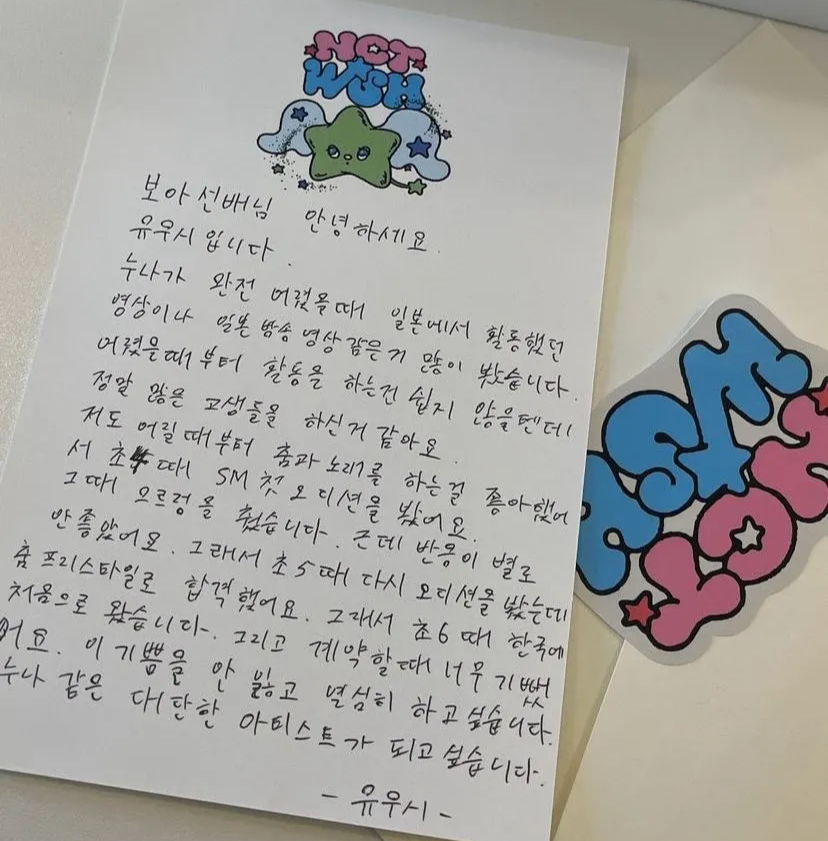 NCT
WISH
보아선배님 안녕하세요.
유우시입니다.
누나가 완전 어렸을때 일본에서 활동했던
영상이나 일본 방송 영상 같은거 많이 봤습니다.
어렸을때부터 활동을 하는건 쉽지 않을텐데
정말 많은 고생들을 하신거 같아요.
저도 어릴때부터 춤과 노래를 하는걸 좋아했어
서 초4 때 SM 첫 오디션을 봤어요.
그때 으르렁을 췄습니다. 근데 반응이 별로
안좋았어요. 그래서 초5때 다시 오디션을 봤는데
춤 프리스타일로 합격했어요. 그래서 초6 때 한국에
처음으로 왔습니다. 그리고 계약할때 너무 기뻤
어요. 이 기쁨을 안 잃고 열심히 하고싶습니다.
누나 같은 대단한 아티스트가 되고싶습니다.
- 유우시 -
NCT
WISH